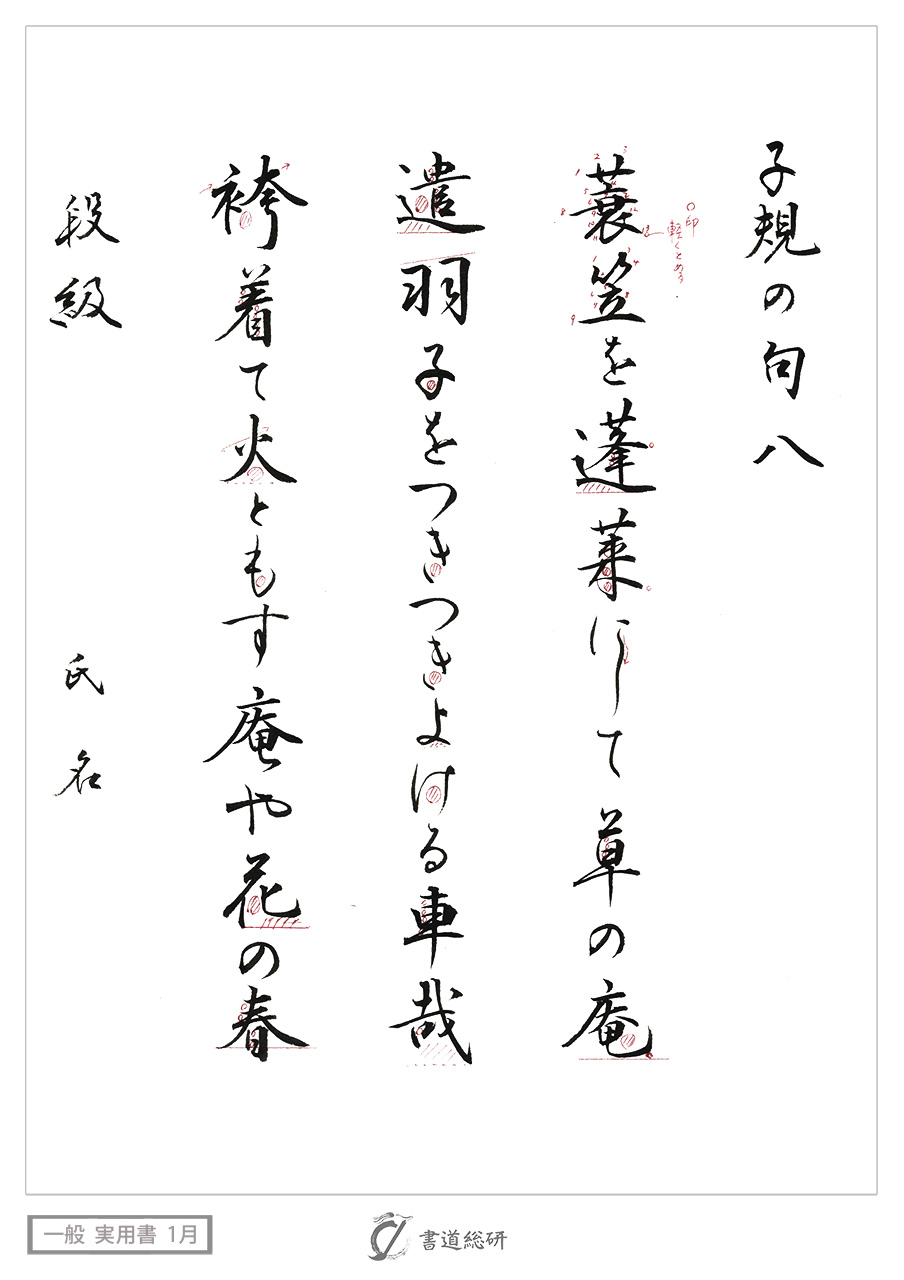 子規の句八
蓑笠を蓬莱にして草の庵
遣羽子をつきつきよける車哉
袴着て火ともす庵や花の春
段級 氏名
○印
軽くとめる
一般 実用書 1月
書道総研